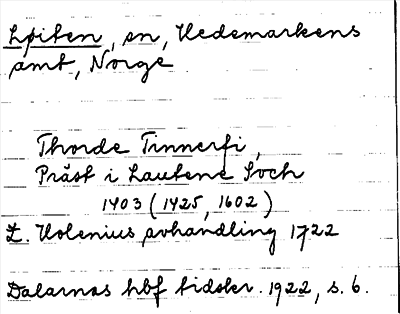 Løiten, sn, Hedemarkens
amt, Norge
Thorde Tinnerfi,
Präst i Lautene Soch
1403 (1425, 1602)
L. Holenius, avhandling 1722
Dalarnas hbf tidskr. 1922, s. 6.